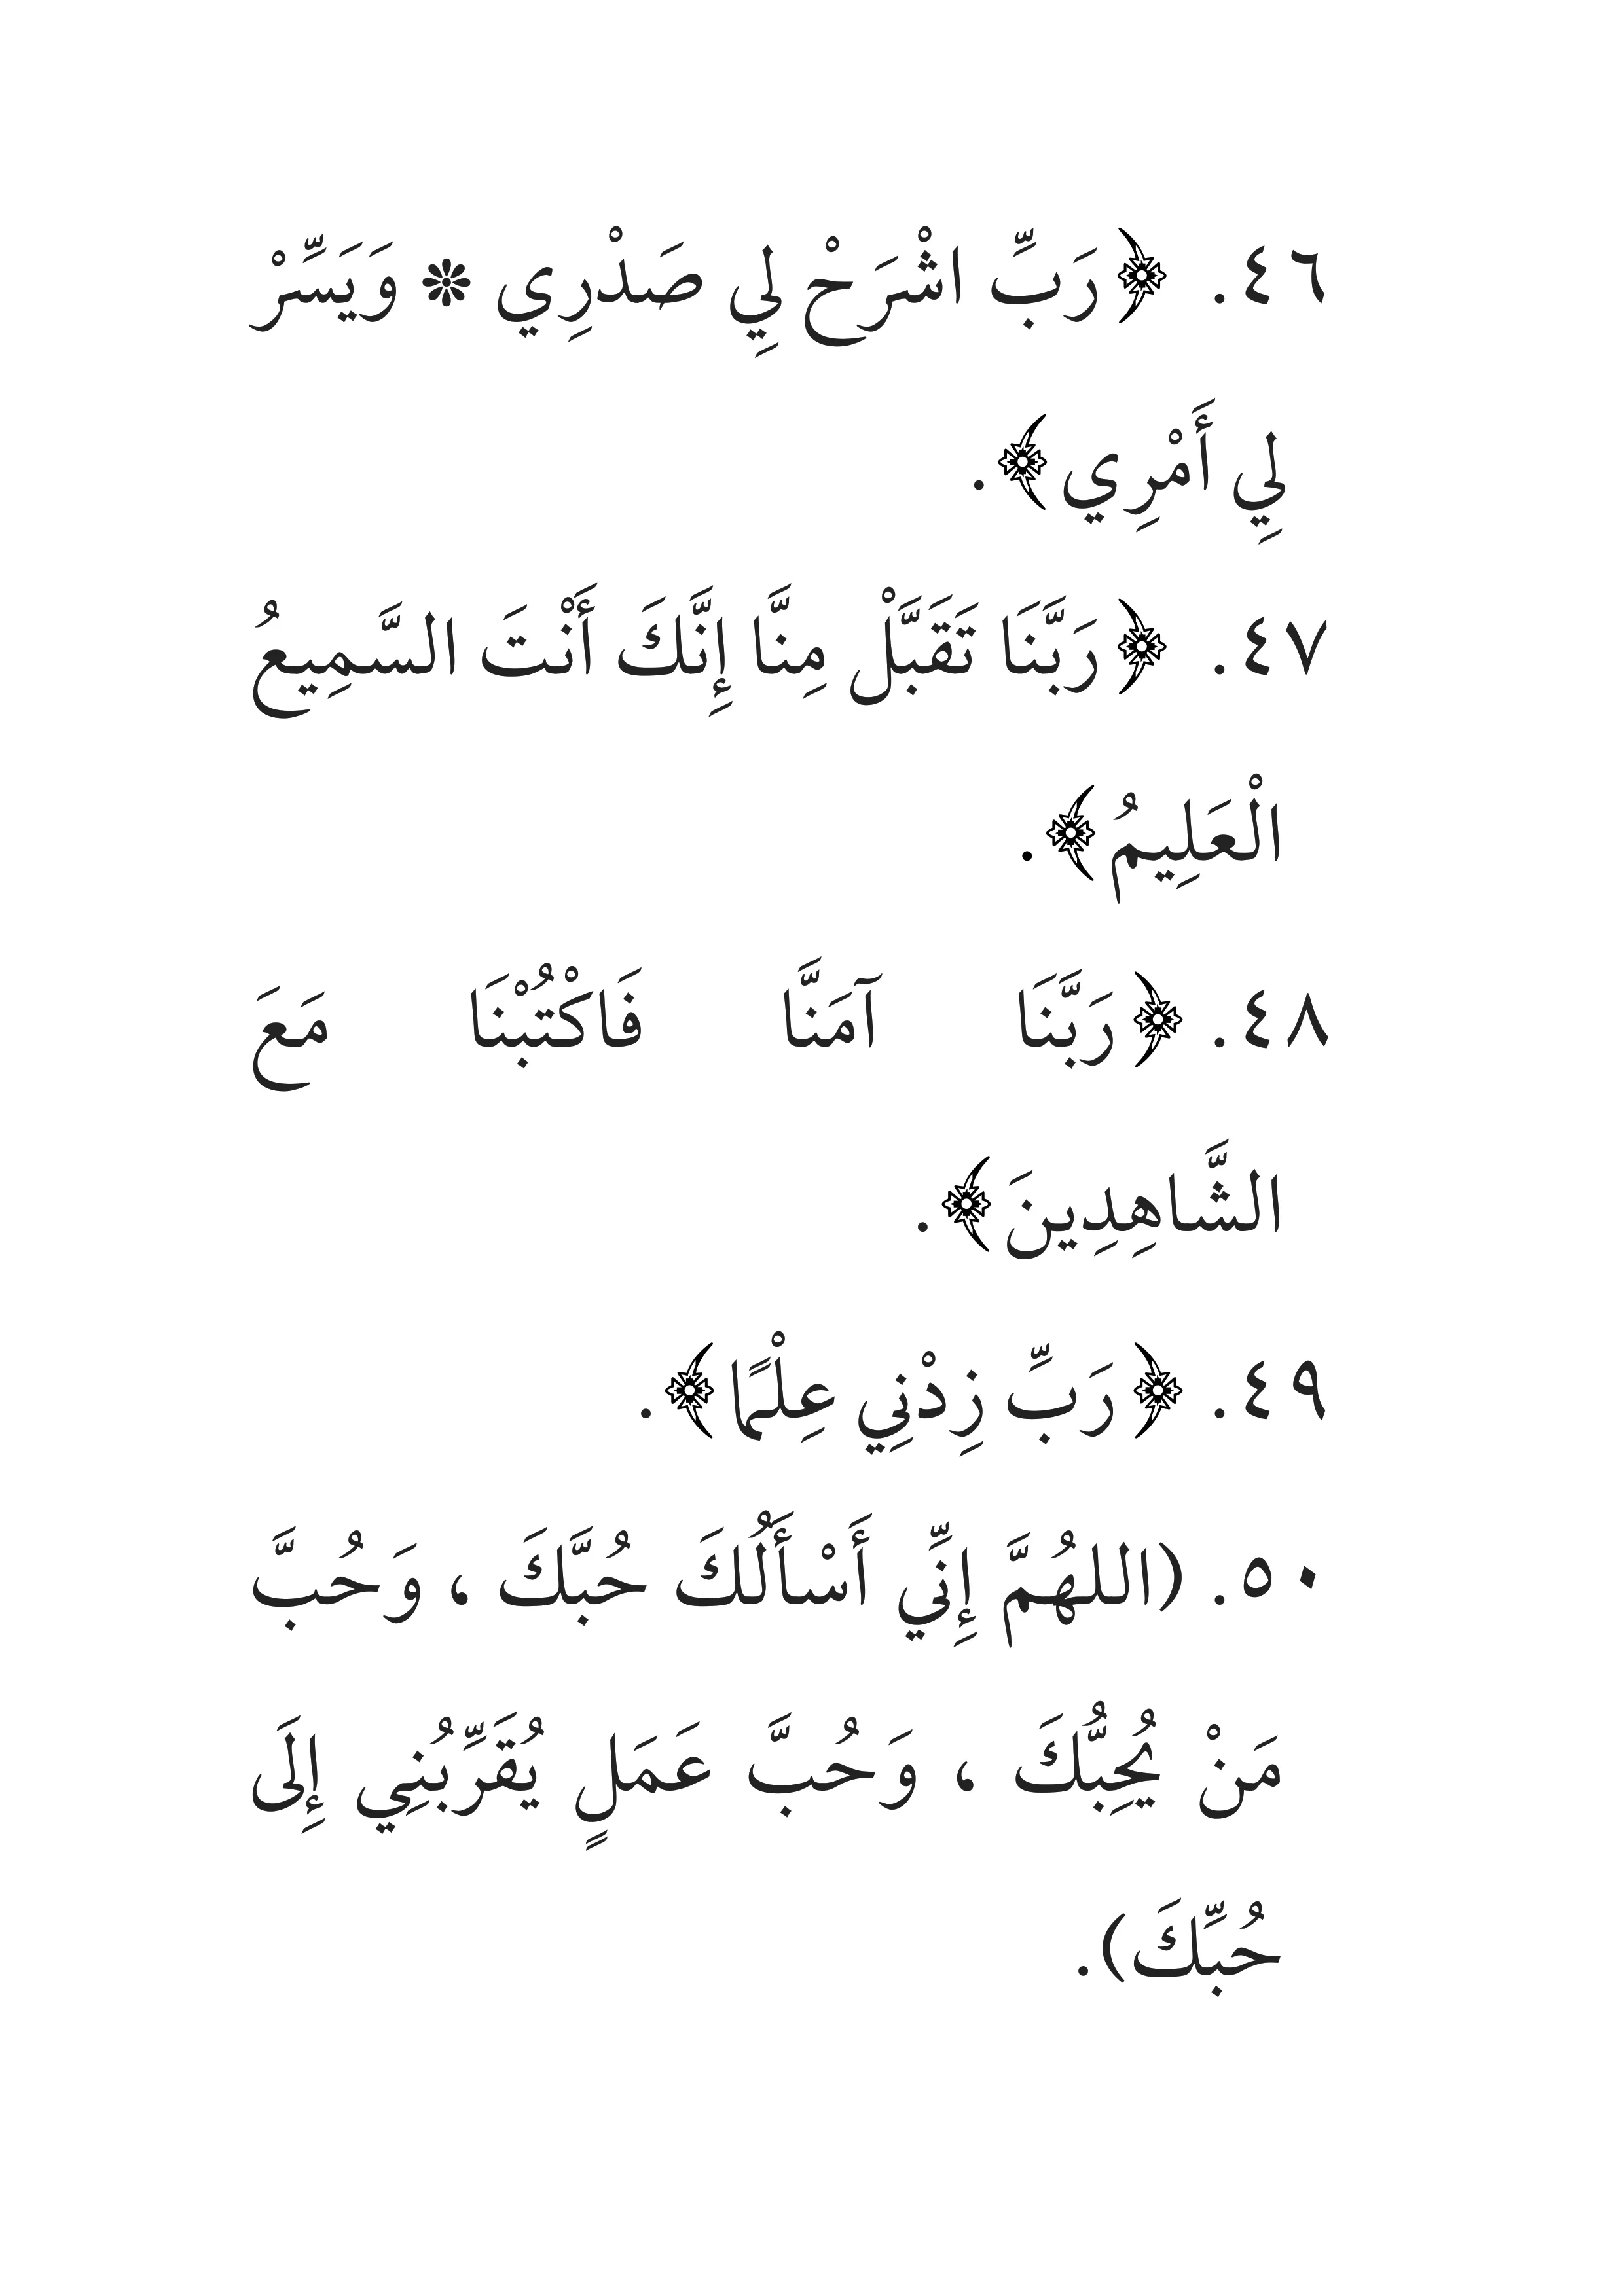 ٤٦. ﴿رَبِّ اشْرَحْ لِي صَدْرِي ❇ وَيَسِّرْ
لِي أَمْرِي﴾.
٤٧. ﴿رَبَّنَا تَقَبَّلْ مِنَّا إِنَّكَ أَنْتَ السَّمِيعُ
الْعَلِيمُ﴾.
٤٨. ﴿رَبَّنَا آمَنَّا فَاكْتُبْنَا مَعَ
الشَّاهِدِينَ﴾.
٤٩. ﴿رَبِّ زِدْنِي عِلْمًا﴾.
٥٠. (اللهُمَّ إِنِّي أَسْأَلُكَ حُبَّكَ ، وَحُبَّ
مَنْ يُحِبُّكَ ، وَحُبَّ عَمَلٍ يُقَرِّبُنِي إِلَى
حُبِّكَ).